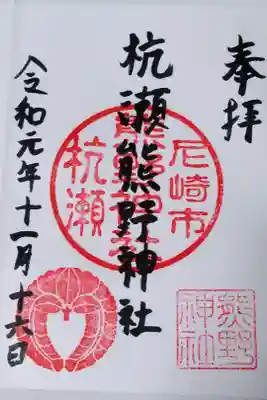 奉拝
尼崎市
杭瀬熊野神社
杭瀬
熊野神社
令和元年十一月十六日